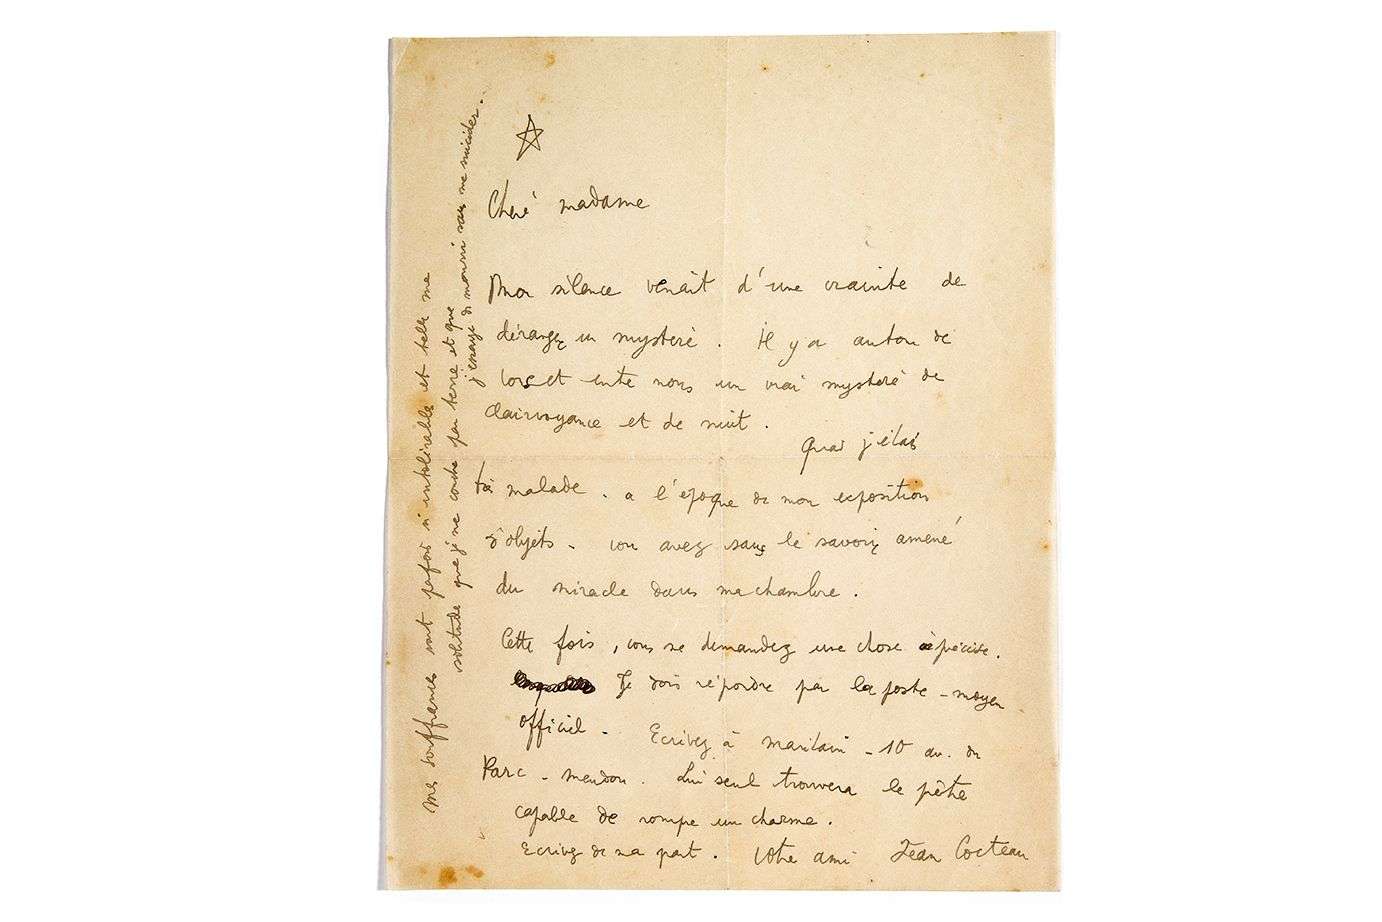 Chère madame
Mon silence venait d'une crainte de
déranger un mystère. Il y a autour de
et entre nous un vrai mystère de
clairvoyance et de nuit.
Quand j'étais
très malade. a l'époque de mon exposition
d'objets - vous avez sans le savoir amené
du miracle dans ma chambre.
Cette fois, vous me demandez une chose précise.
Je dois répondre par la poste - moyen
officiel - Ecrivez à Maritain - 10 av. du
Parc - Meudon. Lui seul trouvera le prêtre
capable de rompre un charme.
Ecrivez de ma part. Votre ami Jean Cocteau
Mes souffrances sont parfois si intolérables et telle ma
solitude que je me couche par terre et que
j'essaye de mourir sans me suicider..